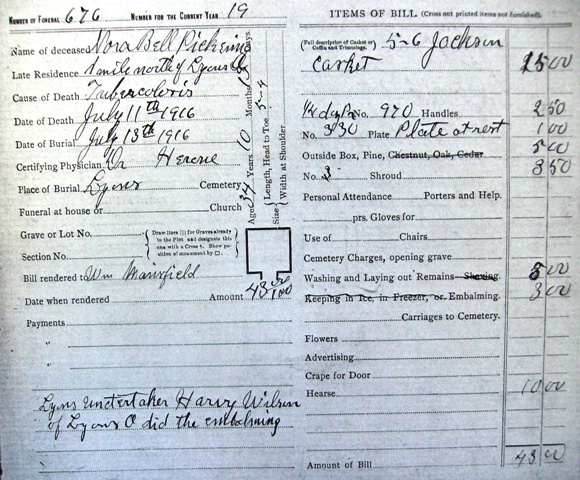 NUMBER OF FUNERAL 676 NUMBER FOR THE CURRENT YEAR 19
Name of deceased Nora Bell Pickering
Late Residence 1 mile north of Lyons O
Cause of Death Tubercolosis
Date of Death July 11th 1916
Date of Burial July 13th 1916
Certifying Physician Dr
Place of Burial Lyons Cemetery
Funeral at house or Church
Grave or Lot No.
Section No.
Draw lines for Graves already in the Plot and designate this one with a Cross †. Show position of monument by □.
Bill rendered to Wm Mansfield
Date when rendered Amount 43 00/100
Payments
"
"
Lyons undertaker Harry Wilson
of Lyons O did the embalming
Age 34 Years 10 Months Days
Size Length, Head to Toe 5-4
Width at Shoulder
ITEMS OF BILL. (Cross out printed items not furnished).
(Full description of Casket or Coffin and Trimmings. 5-6 Jackson
Casket 15 00
No. 970 Handles 2 50
No. 330 Plate Plate at rest 1 00
Outside Box, Pine, Chestnut, Oak, Cedar 5 00
No. 3 Shroud 3 50
Personal Attendance Porters and Help.
prs. Gloves for
Use of Chairs.
Cemetery Charges, opening grave
Washing and Laying out Remains Shaving.
Keeping in Ice, in Freezer, or Embalming. 3 00
Carriages to Cemetery.
Flowers
Advertising.
Crape for Door
Hearse 10 00
Amount of Bill 43 00